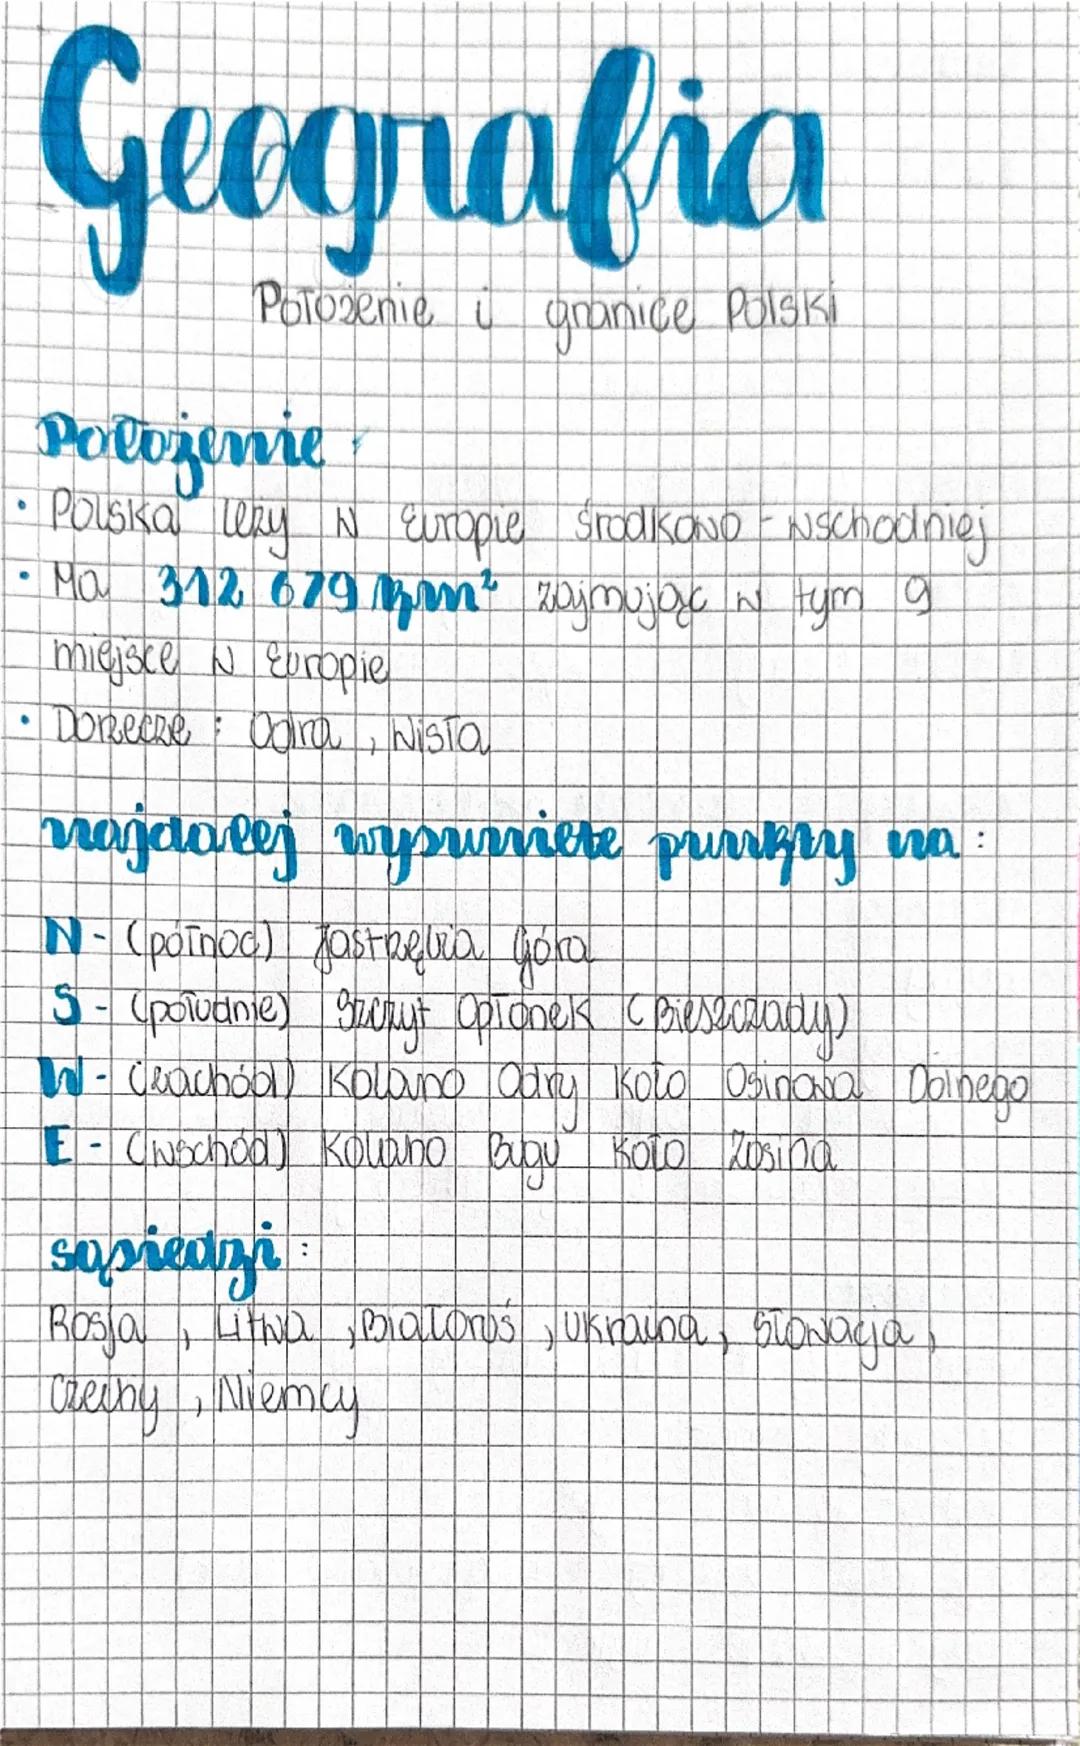 Geografia
Położenie i granice Polski
Położenie
• Polska leży w Europie środkowo-wschodniej
• Ma 312 679 km² zajmując w tym 9
miejsce w Europie
• Dorzecze : Odra , Wisła
najdalej wysuniete punkty na :
N - (północ) Jastrzębia Góra
S - (południe) Szczyt Opłonek (Bieszczady)
W - (zachód) Kolano Odry koło Osinowa Dolnego
E - (wschód) Kolano Bugu koło Zosina
sąsiedzi :
Rosja , Litwa , Białoruś , Ukraina , Słowacja ,
Czechy , Niemcy